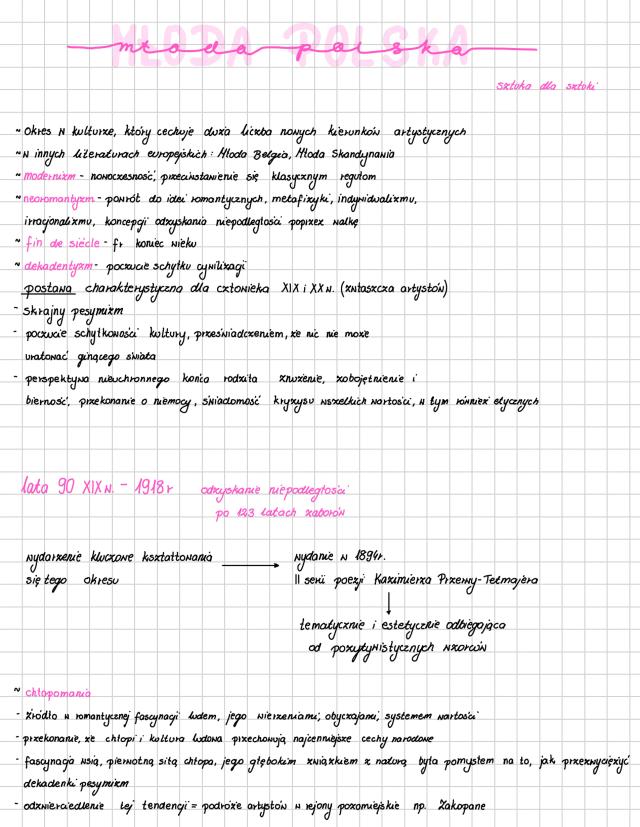 MŁODA POLSKA
młoda polska
sztuka dla sztuki
~ okres w kulturze, który cechuje duża liczba nowych kierunków artystycznych
~ w innych literaturach europejskich: Młoda Belgia, Młoda Skandynawia
~ modernizm - nowoczesność, przeciwstawienie się klasycznym regułom
~ neoromantyzm - powrót do idei romantycznych, metafizyki, indywidualizmu,
irracjonalizmu, koncepcji odzyskania niepodległości poprzez walkę
~ fin de siècle - fr koniec wieku
~ dekadentyzm - poczucie schyłku cywilizacji
postawa charakterystyczna dla człowieka XIX i XX w. (zwłaszcza artystów)
- skrajny pesymizm
- poczucie schyłkowości kultury, przeświadczeniem, że nic nie może
uratować ginącego świata
- perspektywa nieuchronnego końca rodziła znużenie, zobojętnienie i
bierność, przekonanie o niemocy, świadomość kryzysu wszelkich wartości, w tym również etycznych
lata 90 XIX w. - 1918r odzyskanie niepodległości
po 123 latach zaborów
wydarzenie kluczowe kształtowania
się tego okresu
wydanie w 1894r.
II serii poezji Kazimierza Przerwy-Tetmajera
tematycznie i estetycznie odbiegająca
od pozytywistycznych wzorców
~ chłopomania
- źródło w romantycznej fascynacji ludem, jego wierzeniami, obyczajami, systemem wartości
- przekonanie, że chłopi i kultura ludowa przechowują najcenniejsze cechy narodowe
- fascynacja wsią, pierwotną siłą chłopa, jego głębokim związkiem z naturą była pomysłem na to, jak przezwyciężyć
dekadencki pesymizm
- odzwierciedlenie tej tendencji = podróże artystów w rejony pozamiejskie np. Zakopane